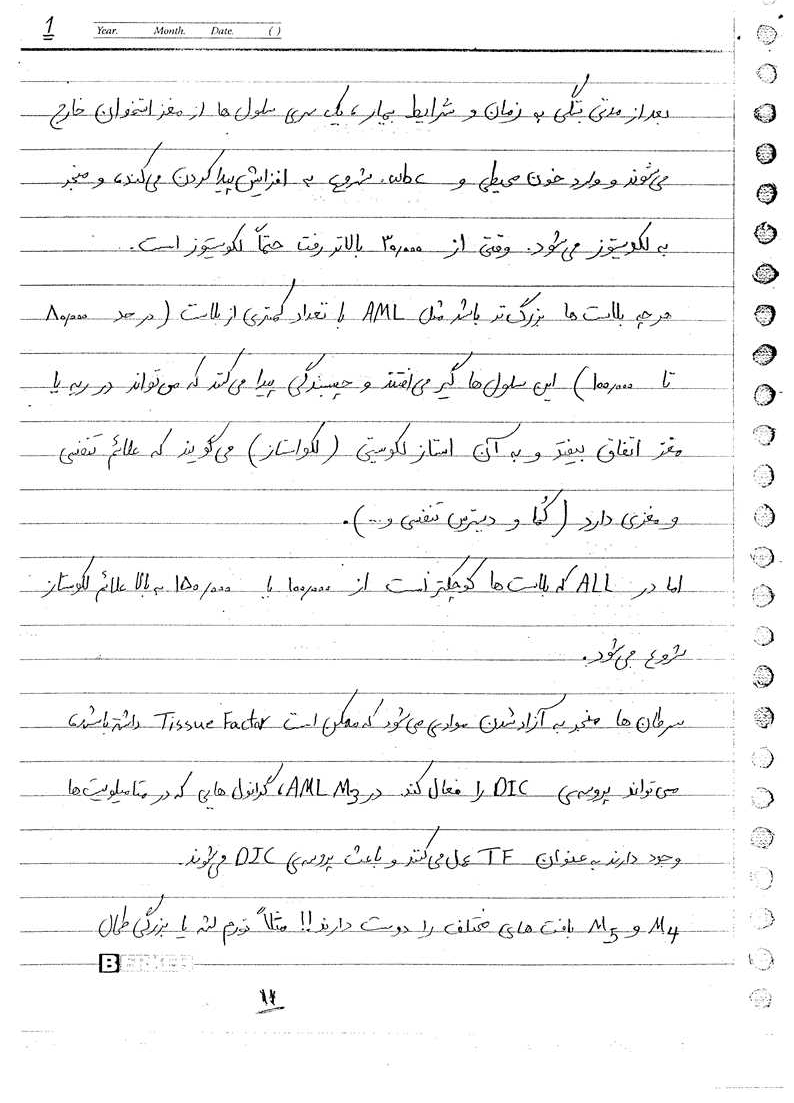 1
Year. Month. Date. ( )
بعد از مدتی بستگی به زمان و شرایط بیمار، یک سری سلول ها از مغز استخوان خارج
می‌شوند و وارد خون محیطی و wbc. شروع به افزایش پیدا کردن می‌کند، و منجر
به لکوسیتوز می‌شود. وقتی از ۳۰,۰۰۰ بالاتر رفت حتماً لکوسیتوز است.
هر چه بلاست ها بزرگ‌تر باشد مثل AML با تعداد کمتری از بلاست (در حد ۸۰,۰۰۰
تا ۱۰۰,۰۰۰) این سلول ها گیر می‌افتند و چسبندگی پیدا می‌کند که می‌تواند در ریه یا
مغز اتفاق بیفتد و به آن استاز لکوسیتی (لکواستاز) می‌گویند که علائم تنفسی
و مغزی دارد (کُما و دیسترس تنفسی و...).
اما در ALL که بلاست ها کوچکتر است از ۱۰۰,۰۰۰ یا ۱۵۰,۰۰۰ به بالا علائم لکوستاز
شروع می‌شود.
سرطان ها منجر به آزاد شدن موادی می‌شود که ممکن است Tissue Factor داشته باشد،
می‌تواند پروسه‌ی DIC را فعال کند. در AML M3، گرانول هایی که در متامیلوسیت ها
وجود دارند به عنوان TF عمل می‌کنند و باعث پروسه‌ی DIC می‌شوند.
M4 و M5 بافت های مختلف را دوست دارند!! مثلاً تورم لثه یا بزرگی طحال
۱۷